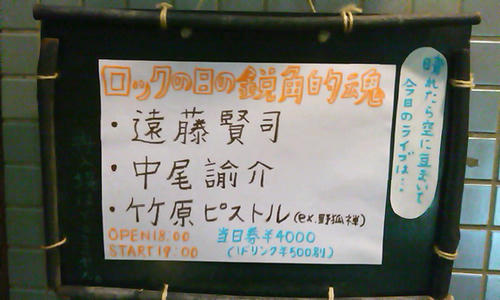 晴れたら空に豆まいて
今日のライブは…
ロックの日の鋭角的魂
・遠藤賢司
・中尾諭介
・竹原ピストル(ex.野狐禅)
OPEN18:00
START19:00
当日券¥4000
(1ドリンク¥500別)